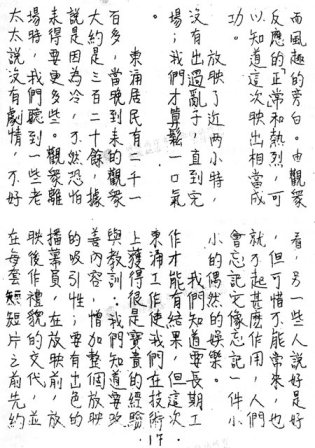 而風趣的旁白。由觀衆
反應的正常和熱烈，可
以知道這次映出相當成
功。
放映了近兩小時，
沒有出過亂子，直到完
場；我們才算鬆一口氣
東涌居民有二千一
百多，當晚到來的觀衆
大約是三百二十餘，據
說是因為冷，不然恐怕
來得要更多些。觀衆離
場時，我們聽到一些老
太太說沒有劇情，不好
看，另一些人說好是好
，但可惜不能常來，也
就不起甚麽作用，人們
會忘記它像忘記一件小
小的偶然的娛樂。
我們知道要長期工
作才能有結果，但這次
東涌工作使我們在技術
上獲得很是寶貴的經驗
與教訓：我們知道要改
善內容，增加整個放映
的吸引性；要有出色的
播藁員，在放映前，放
映後作禮貌的交代，並
在每套短片之前先約
·17·